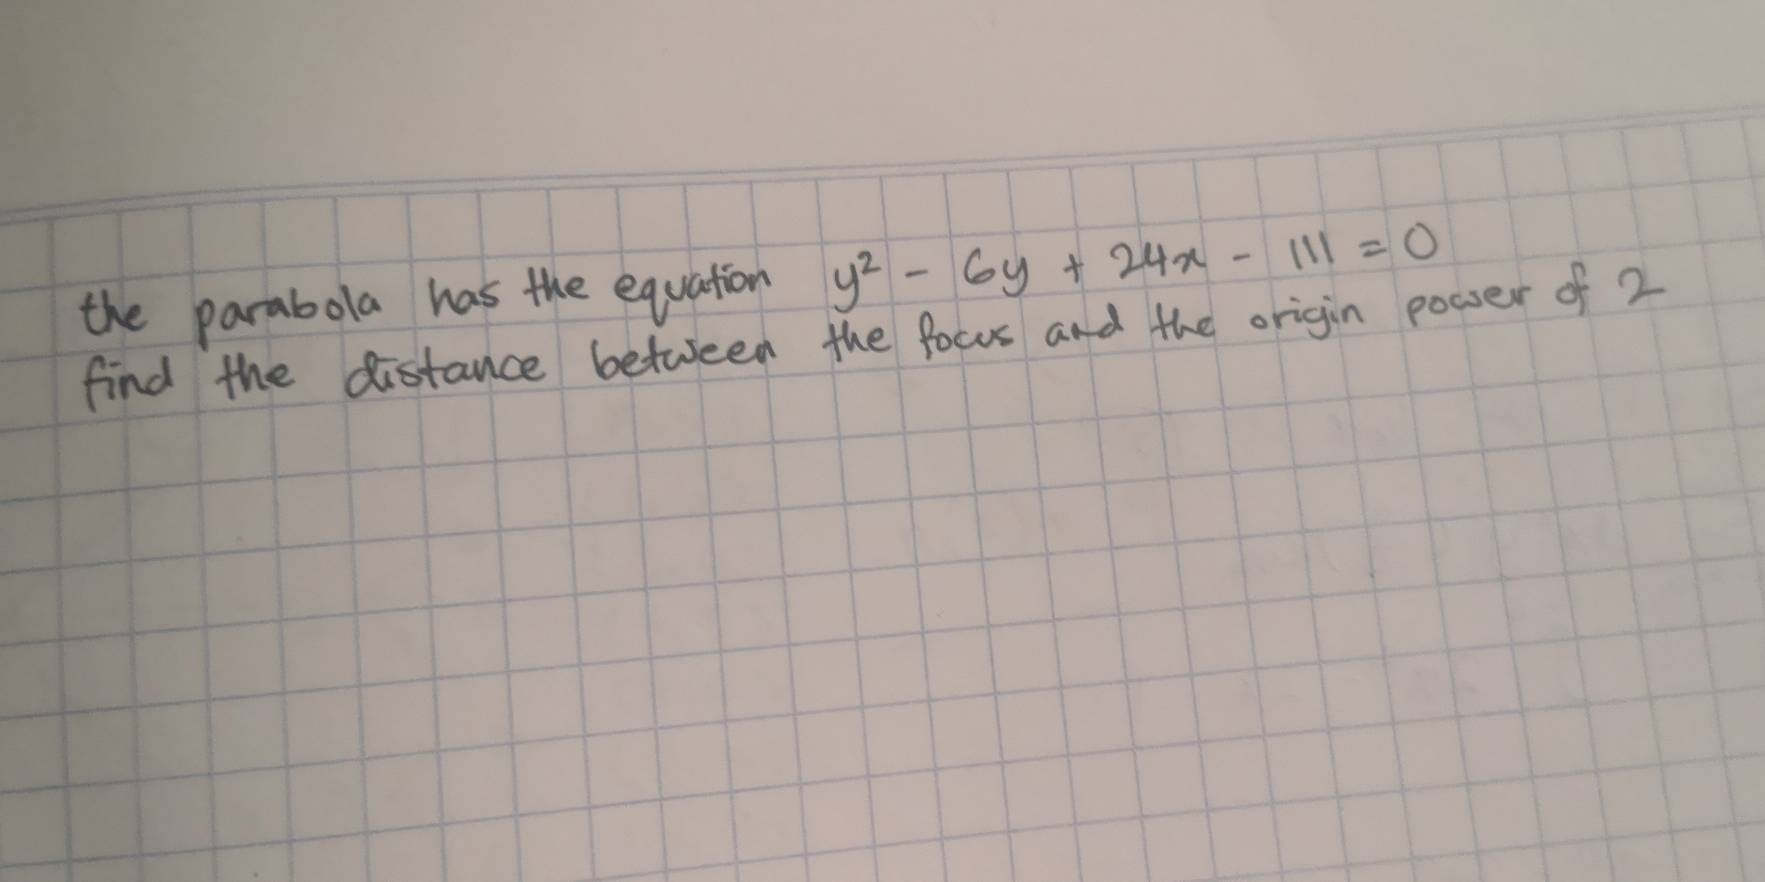 the parabola has the equation y² - 6y + 24x - 111 = 0
find the distance between the focus and the origin power of 2